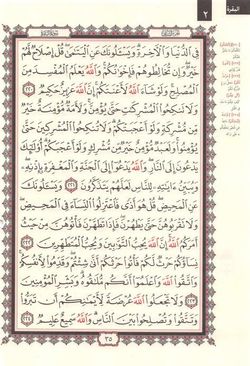 البقرة
٢
فِي الدُّنْيَا وَالْآخِرَةِ وَيَسْـَٔلُونَكَ عَنِ الْيَتَـٰمَىٰ قُلْ إِصْلَاحٌ لَّهُمْ
خَيْرٌ وَإِن تُخَالِطُوهُمْ فَإِخْوَٰنُكُمْ وَاللَّهُ يَعْلَمُ الْمُفْسِدَ مِنَ
الْمُصْلِحِ وَلَوْ شَاءَ اللَّهُ لَأَعْنَتَكُمْ إِنَّ اللَّهَ عَزِيزٌ حَكِيمٌ ٢٢٠
وَلَا تَنكِحُوا الْمُشْرِكَـٰتِ حَتَّىٰ يُؤْمِنَّ وَلَأَمَةٌ مُّؤْمِنَةٌ خَيْرٌ
مِّن مُّشْرِكَةٍ وَلَوْ أَعْجَبَتْكُمْ وَلَا تُنكِحُوا الْمُشْرِكِينَ حَتَّىٰ
يُؤْمِنُوا وَلَعَبْدٌ مُّؤْمِنٌ خَيْرٌ مِّن مُّشْرِكٍ وَلَوْ أَعْجَبَكُمْ أُولَـٰئِكَ
يَدْعُونَ إِلَى النَّارِ وَاللَّهُ يَدْعُوا إِلَى الْجَنَّةِ وَالْمَغْفِرَةِ بِإِذْنِهِ
وَيُبَيِّنُ ءَايَـٰتِهِ لِلنَّاسِ لَعَلَّهُمْ يَتَذَكَّرُونَ ٢٢١ وَيَسْـَٔلُونَكَ
عَنِ الْمَحِيضِ قُلْ هُوَ أَذًى فَاعْتَزِلُوا النِّسَاءَ فِي الْمَحِيضِ
وَلَا تَقْرَبُوهُنَّ حَتَّىٰ يَطْهُرْنَ فَإِذَا تَطَهَّرْنَ فَأْتُوهُنَّ مِنْ حَيْثُ
أَمَرَكُمُ اللَّهُ إِنَّ اللَّهَ يُحِبُّ التَّوَّٰبِينَ وَيُحِبُّ الْمُتَطَهِّرِينَ ٢٢٢
نِسَاؤُكُمْ حَرْثٌ لَّكُمْ فَأْتُوا حَرْثَكُمْ أَنَّىٰ شِئْتُمْ وَقَدِّمُوا لِأَنفُسِكُمْ
وَاتَّقُوا اللَّهَ وَاعْلَمُوا أَنَّكُم مُّلَـٰقُوهُ وَبَشِّرِ الْمُؤْمِنِينَ
٢٢٣ وَلَا تَجْعَلُوا اللَّهَ عُرْضَةً لِّأَيْمَـٰنِكُمْ أَن تَبَرُّوا
وَتَتَّقُوا وَتُصْلِحُوا بَيْنَ النَّاسِ وَاللَّهُ سَمِيعٌ عَلِيمٌ ٢٢٤
٣٥